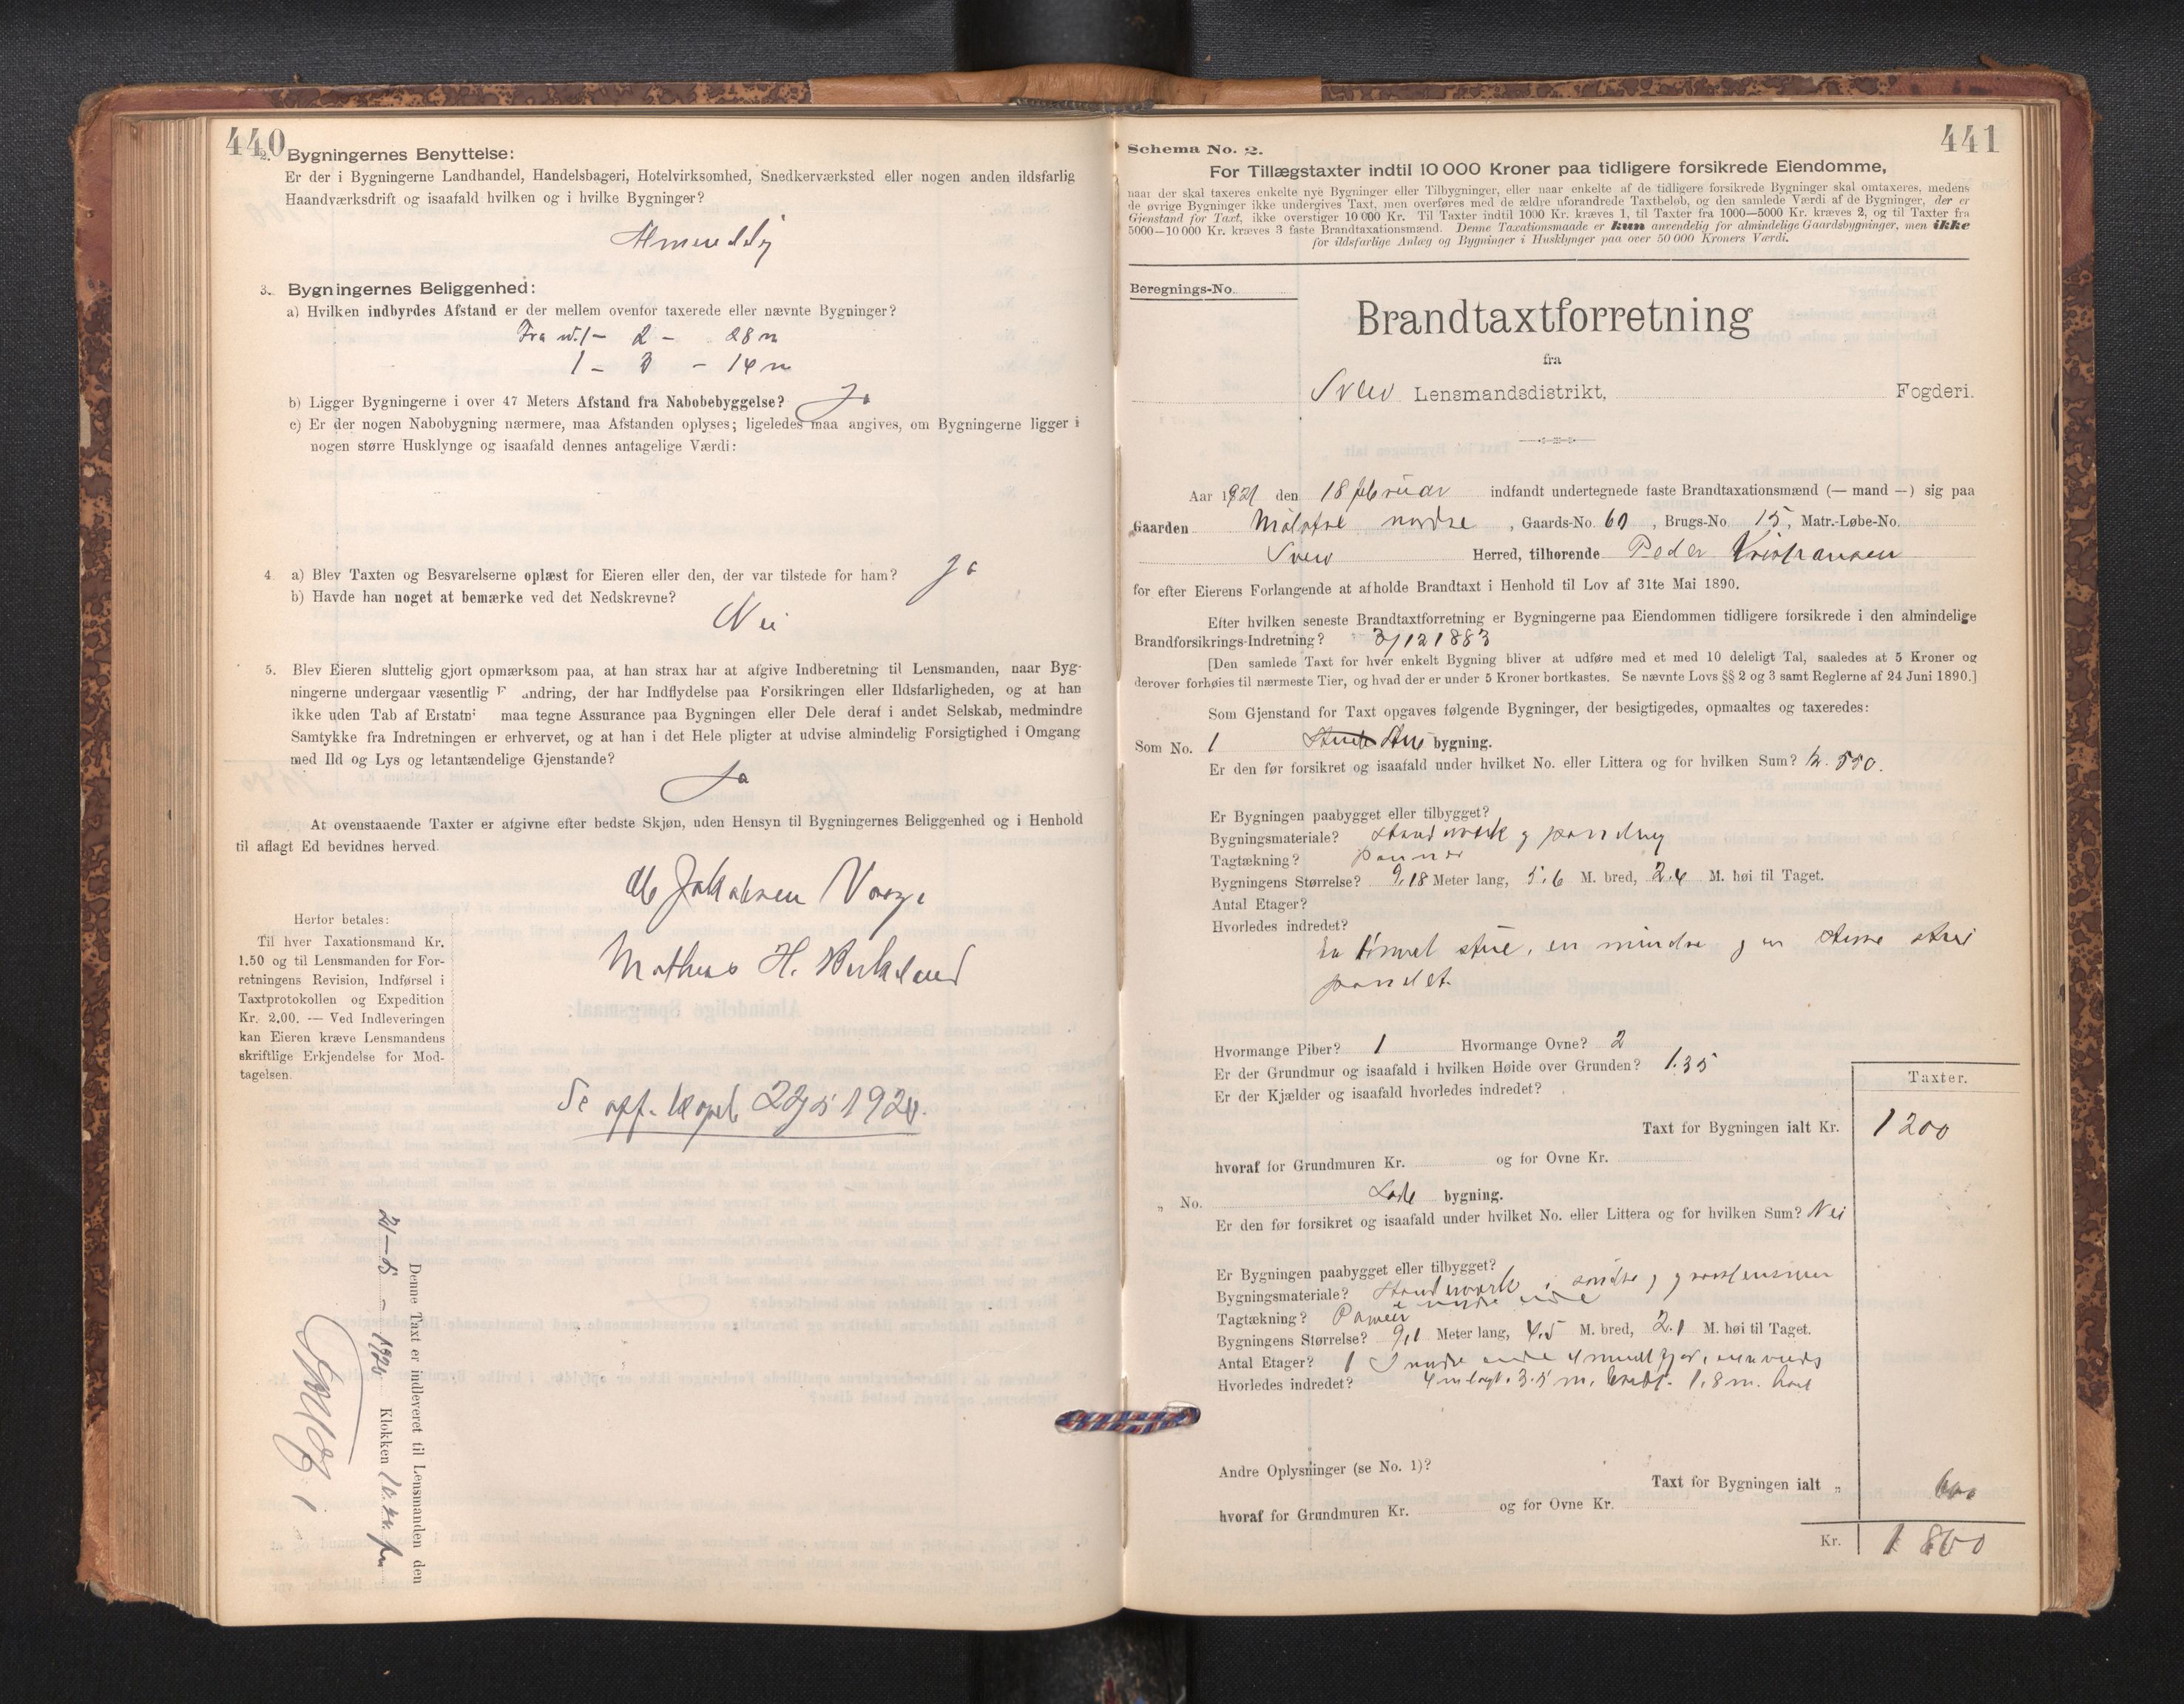 440
2. Bygningernes Benyttelse:
Er der i Bygningerne Landhandel, Handelsbageri, Hotelvirksomhed, Snedkerværksted eller nogen anden ildsfarlig
Haandværksdrift og isaafald hvilken og i hvilke Bygninger?
3. Bygningernes Beliggenhed:
a) Hvilken indbyrdes Afstand er der mellem ovenfor taxerede eller nævnte Bygninger?
Fra № 1 - 2 - 28 m
1 - 3 - 14 m
b) Ligger Bygningerne i over 47 Meters Afstand fra Nabobebyggelse? Ja
c) Er der nogen Nabobygning nærmere, maa Afstanden oplyses; ligeledes maa angives, om Bygningerne ligger i
nogen større Husklynge og isaafald dennes antagelige Værdi:
4. a) Blev Taxten og Besvarelserne oplæst for Eieren eller den, der var tilstede for ham? Ja
b) Havde han noget at bemærke ved det Nedskrevne?
Nei
5. Blev Eieren sluttelig gjort opmærksom paa, at han strax har at afgive Indberetning til Lensmanden, naar Byg-
ningerne undergaar væsentlig F andring, der har Indflydelse paa Forsikringen eller Ildsfarligheden, og at han
ikke uden Tab af Erstatn maa tegne Assurance paa Bygningen eller Dele deraf i andet Selskab, medmindre
Samtykke fra Indretningen er erhvervet, og at han i det Hele pligter at udvise almindelig Forsigtighed i Omgang
med Ild og Lys og letantændelige Gjenstande?
Ja
At ovenstaaende Taxter er afgivne efter bedste Skjøn, uden Hensyn til Bygningernes Beliggenhed og i Henhold
til aflagt Ed bevidnes herved.
Jakobsen
Mathias H. Birkeland
Herfor betales:
Til hver Taxationsmand Kr.
1.50 og til Lensmanden for For-
retningens Revision, Indførsel i
Taxtprotokollen og Expedition
Kr. 2.00. — Ved Indleveringen
kan Eieren kræve Lensmandens
skriftlige Erkjendelse for Mod-
tagelsen.
Denne Taxt er indleveret til Lensmanden den
21-5 - 192 Klokken 10
441
Schema No. 2.
For Tillægstaxter indtil 10 000 Kroner paa tidligere forsikrede Eiendomme,
naar der skal taxeres enkelte nye Bygninger eller Tilbygninger, eller naar enkelte af de tidligere forsikrede Bygninger skal omtaxeres, medens
de øvrige Bygninger ikke undergives Taxt, men overføres med de ældre uforandrede Taxtbeløb, og den samlede Værdi af de Bygninger, der er
Gjenstand for Taxt, ikke overstiger 10 000 Kr. Til Taxter indtil 1000 Kr. kræves 1, til Taxter fra 1000—5000 Kr. kræves 2, og til Taxter fra
5000—10 000 Kr. kræves 3 faste Brandtaxationsmænd. Denne Taxationsmaade er kun anvendelig for almindelige Gaardsbygninger, men ikke
for ildsfarlige Anlæg og Bygninger i Husklynger paa over 50 000 Kroners Værdi.
Beregnings-No.
Brandtaxtforretning
fra
Sveio Lensmandsdistrikt, Fogderi.
Aar 1921 den 18 februar indfandt undertegnede faste Brandtaxationsmænd (— mand —) sig paa
Gaarden nordre, Gaards-No. 60, Brugs-No. 15, Matr.-Løbe-No.
Sveio Herred, tilhørende Peder Kristiansen
for efter Eierens Forlangende at afholde Brandtaxt i Henhold til Lov af 31te Mai 1890.
Efter hvilken seneste Brandtaxtforretning er Bygningerne paa Eiendommen tidligere forsikrede i den almindelige
Brandforsikrings-Indretning? 3/12 1883
[Den samlede Taxt for hver enkelt Bygning bliver at udføre med et med 10 deleligt Tal, saaledes at 5 Kroner og
derover forhøies til nærmeste Tier, og hvad der er under 5 Kroner bortkastes. Se nævnte Lovs §§ 2 og 3 samt Reglerne af 24 Juni 1890.]
Som Gjenstand for Taxt opgaves følgende Bygninger, der besigtigedes, opmaaltes og taxeredes:
Som No. 1 bygning.
Er den før forsikret og isaafald under hvilket No. eller Littera og for hvilken Sum? k. 550.
Er Bygningen paabygget eller tilbygget?
Bygningsmateriale? Standværk og
Tagtækning? panner
Bygningens Størrelse? 9,18 Meter lang, 5,6 M. bred, 2,4 M. høi til Taget.
Antal Etager?
Hvorledes indredet?
En tømret stue, en mindre
Hvormange Piber? 1 Hvormange Ovne? 2
Er der Grundmur og isaafald i hvilken Høide over Grunden? 1.35
Er der Kjælder og isaafald hvorledes indredet?
Taxter.
Taxt for Bygningen ialt Kr. 1200
hvoraf for Grundmuren Kr. og for Ovne Kr.
„ No. Lade bygning.
Er den før forsikret og isaafald under hvilket No. eller Littera og for hvilken Sum? Nei
Er Bygningen paabygget eller tilbygget?
Bygningsmateriale? Standværk i søndre
Tagtækning? Panner
Bygningens Størrelse? 9,1 Meter lang, 4.5 M. bred, 2.1 M. høi til Taget.
Antal Etager? 1
Hvorledes indredet? 3.5 m. bredt. 1.8 m.
Andre Oplysninger (se No. 1)?
Taxt for Bygningen ialt „ 600
hvoraf for Grundmuren Kr. og for Ovne Kr.
Kr. 1800